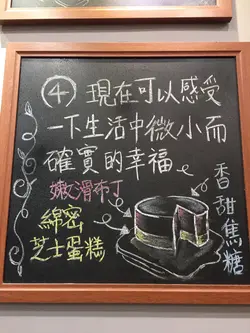 ④ 現在可以感受
一下生活中微小而
確實的幸福
嫩滑布丁
綿密
芝士蛋糕
香甜焦糖